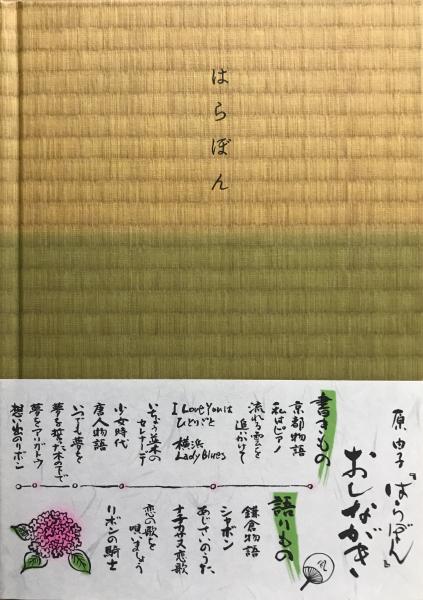 はらぼん
原由子『はらぼん』
おしながき
書きもの
京都物語
私はピアノ
流れる雲を
追いかけて
I Love Youは
ひとりごと
横浜
Lady Blues
いちょう並木の
セレナーデ
少女時代
唐人物語
いつでも夢を
夢を誓った木の下で
夢をアリガトウ
想い出のリボン
語りもの
鎌倉物語
シャボン
あじさいのうた
ナチカサス恋歌
恋の歌を
唄いましょう
リボンの騎士